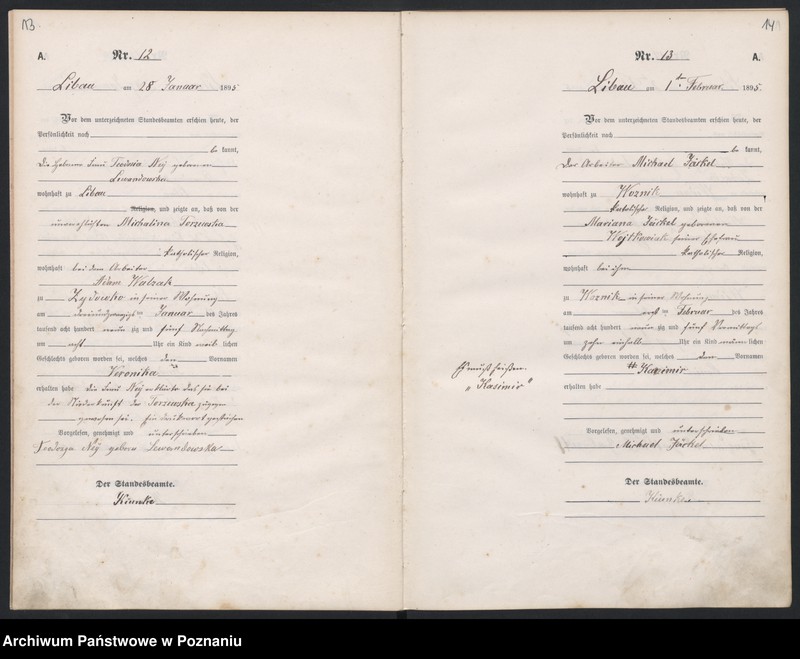 13
A.
Nr. 12
Libau am 28 Januar 1895
Vor dem unterzeichneten Standesbeamten erschien heute, der
Persönlichkeit nach
be kannt,
die Hebamme Frau Teodozia Ney geborene
Lewandowska
wohnhaft zu Libau
Religion, und zeigte an, daß von der
unverehelichten Michalina
katholischer Religion,
wohnhaft bei dem Arbeiter
Adam Walzak
zu Zydowko in seiner Wohnung
am dreiundzwanzigsten Januar des Jahres
tausend acht hundert neun zig und fünf Nachmittag
um acht Uhr ein Kind weib lichen
Geschlechts geboren worden sei, welches den Vornamen
Veronika
erhalten habe die Frau Ney erklärte daß sie bei
der Niederkunft der zugegen
gewesen sei. Ein Druckwort gestrichen
Vorgelesen, genehmigt und unterschrieben
Teodozya Ney geborn Lewandowska
Der Standesbeamte.
14
Nr. 13
A.
Libau am 1ten Februar 1895
Vor dem unterzeichneten Standesbeamten erschien heute, der
Persönlichkeit nach
be kannt,
Der Arbeiter Michael Järkel
wohnhaft zu Woznik
katholischer Religion, und zeigte an, daß von der
Mariana Järkel geborenen
Wojtkowiak seiner Ehefrau
katholischer Religion,
wohnhaft bei ihm
zu Woznik in seiner Wohnung
am ersten Februar des Jahres
tausend acht hundert neun zig und fünf Vormittags
um zehn einhalb Uhr ein Kind männ lichen
Geschlechts geboren worden sei, welches den Vornamen
Kazimir
erhalten habe
Es muß heißen
„Kasimir"
Vorgelesen, genehmigt und unterschrieben
Michael Järkel
Der Standesbeamte.
Archiwum Państwowe w Poznaniu